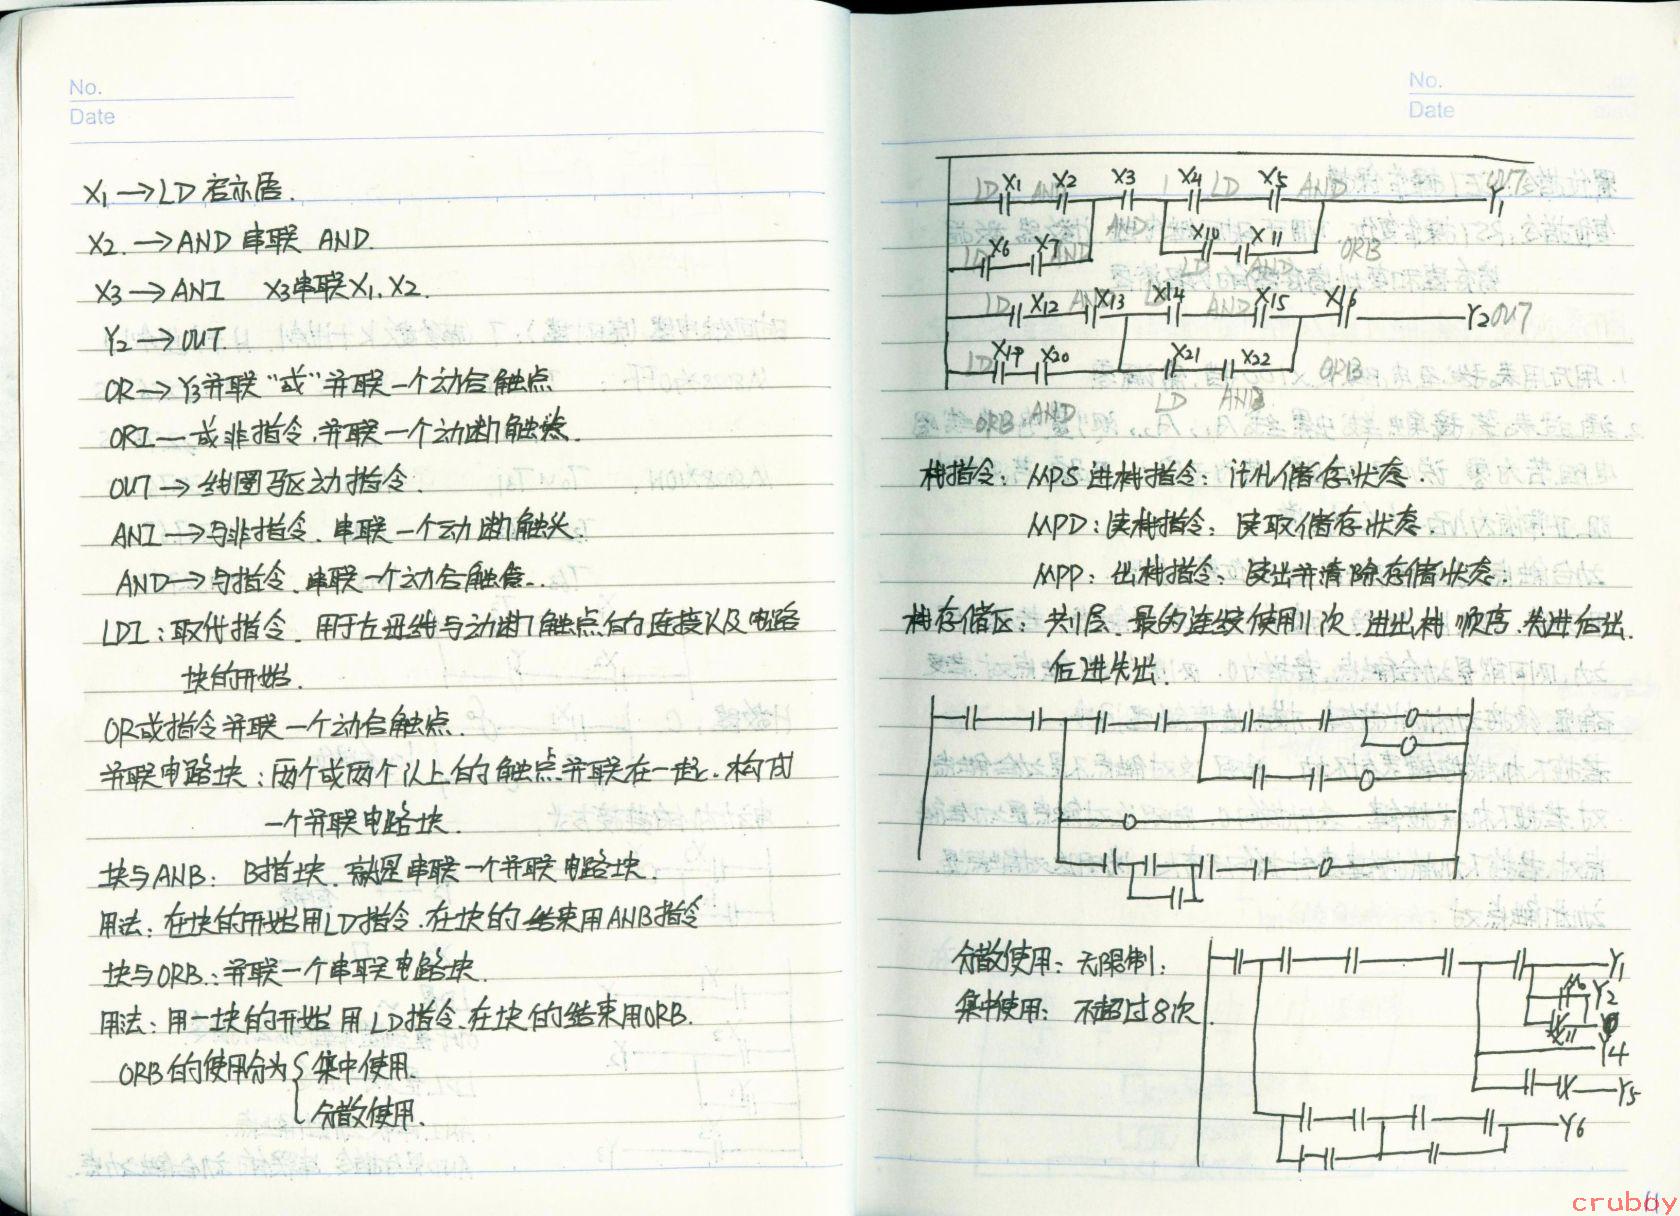 No.
Date
X1 → LD 启示居.
X2. → AND 串联 AND.
X3 → ANI X3串联X1、X2.
Y2 → OUT.
OR → Y3并联“或”并联一个动合触点
ORI — 或非指令.并联一个动断触点.
OUT → 线圈驱动指令.
ANI → 与非指令、串联一个动断触头.
AND → 与指令、串联一个动合触点..
LDI：取代指令、用于左母线与动断触点的连接以及电路
块的开始.
OR或指令并联一个动合触点.
并联电路块：两个或两个以上的触点并联在一起、构成
一个并联电路块.
块与ANB： B指块、就是串联一个并联电路块.
用法：在块的开始用LD指令.在块的结束用ANB指令
块与ORB.：并联一个串联电路块.
用法：用一块的开始用LD指令.在块的结束用ORB.
ORB的使用分为{ 集中使用.
分散使用.
No.
Date
LD X1 AND X2 X3 X4 LD X5 AND OUT
Y1
AND
LD X6 X7 AND X10 X11 ORB
LD AND
LD X12 AND X13 X14 AND X15 X16 Y2 OUT
LD X19 X20 X21 X22 ORB
ORB AND LD AND
栈指令： MPS 进栈指令：计札储存状态.
MPD：读栈指令：读取储存状态.
MPP：出栈指令：读出并清除存储状态.
栈存储区：共11层、最的连续使用11次.进出栈顺序.先进后出.
后进先出.
分散使用：无限制；
集中使用：不超过8次.
Y1
Y2
Y4
Y5
Y6
cruboy